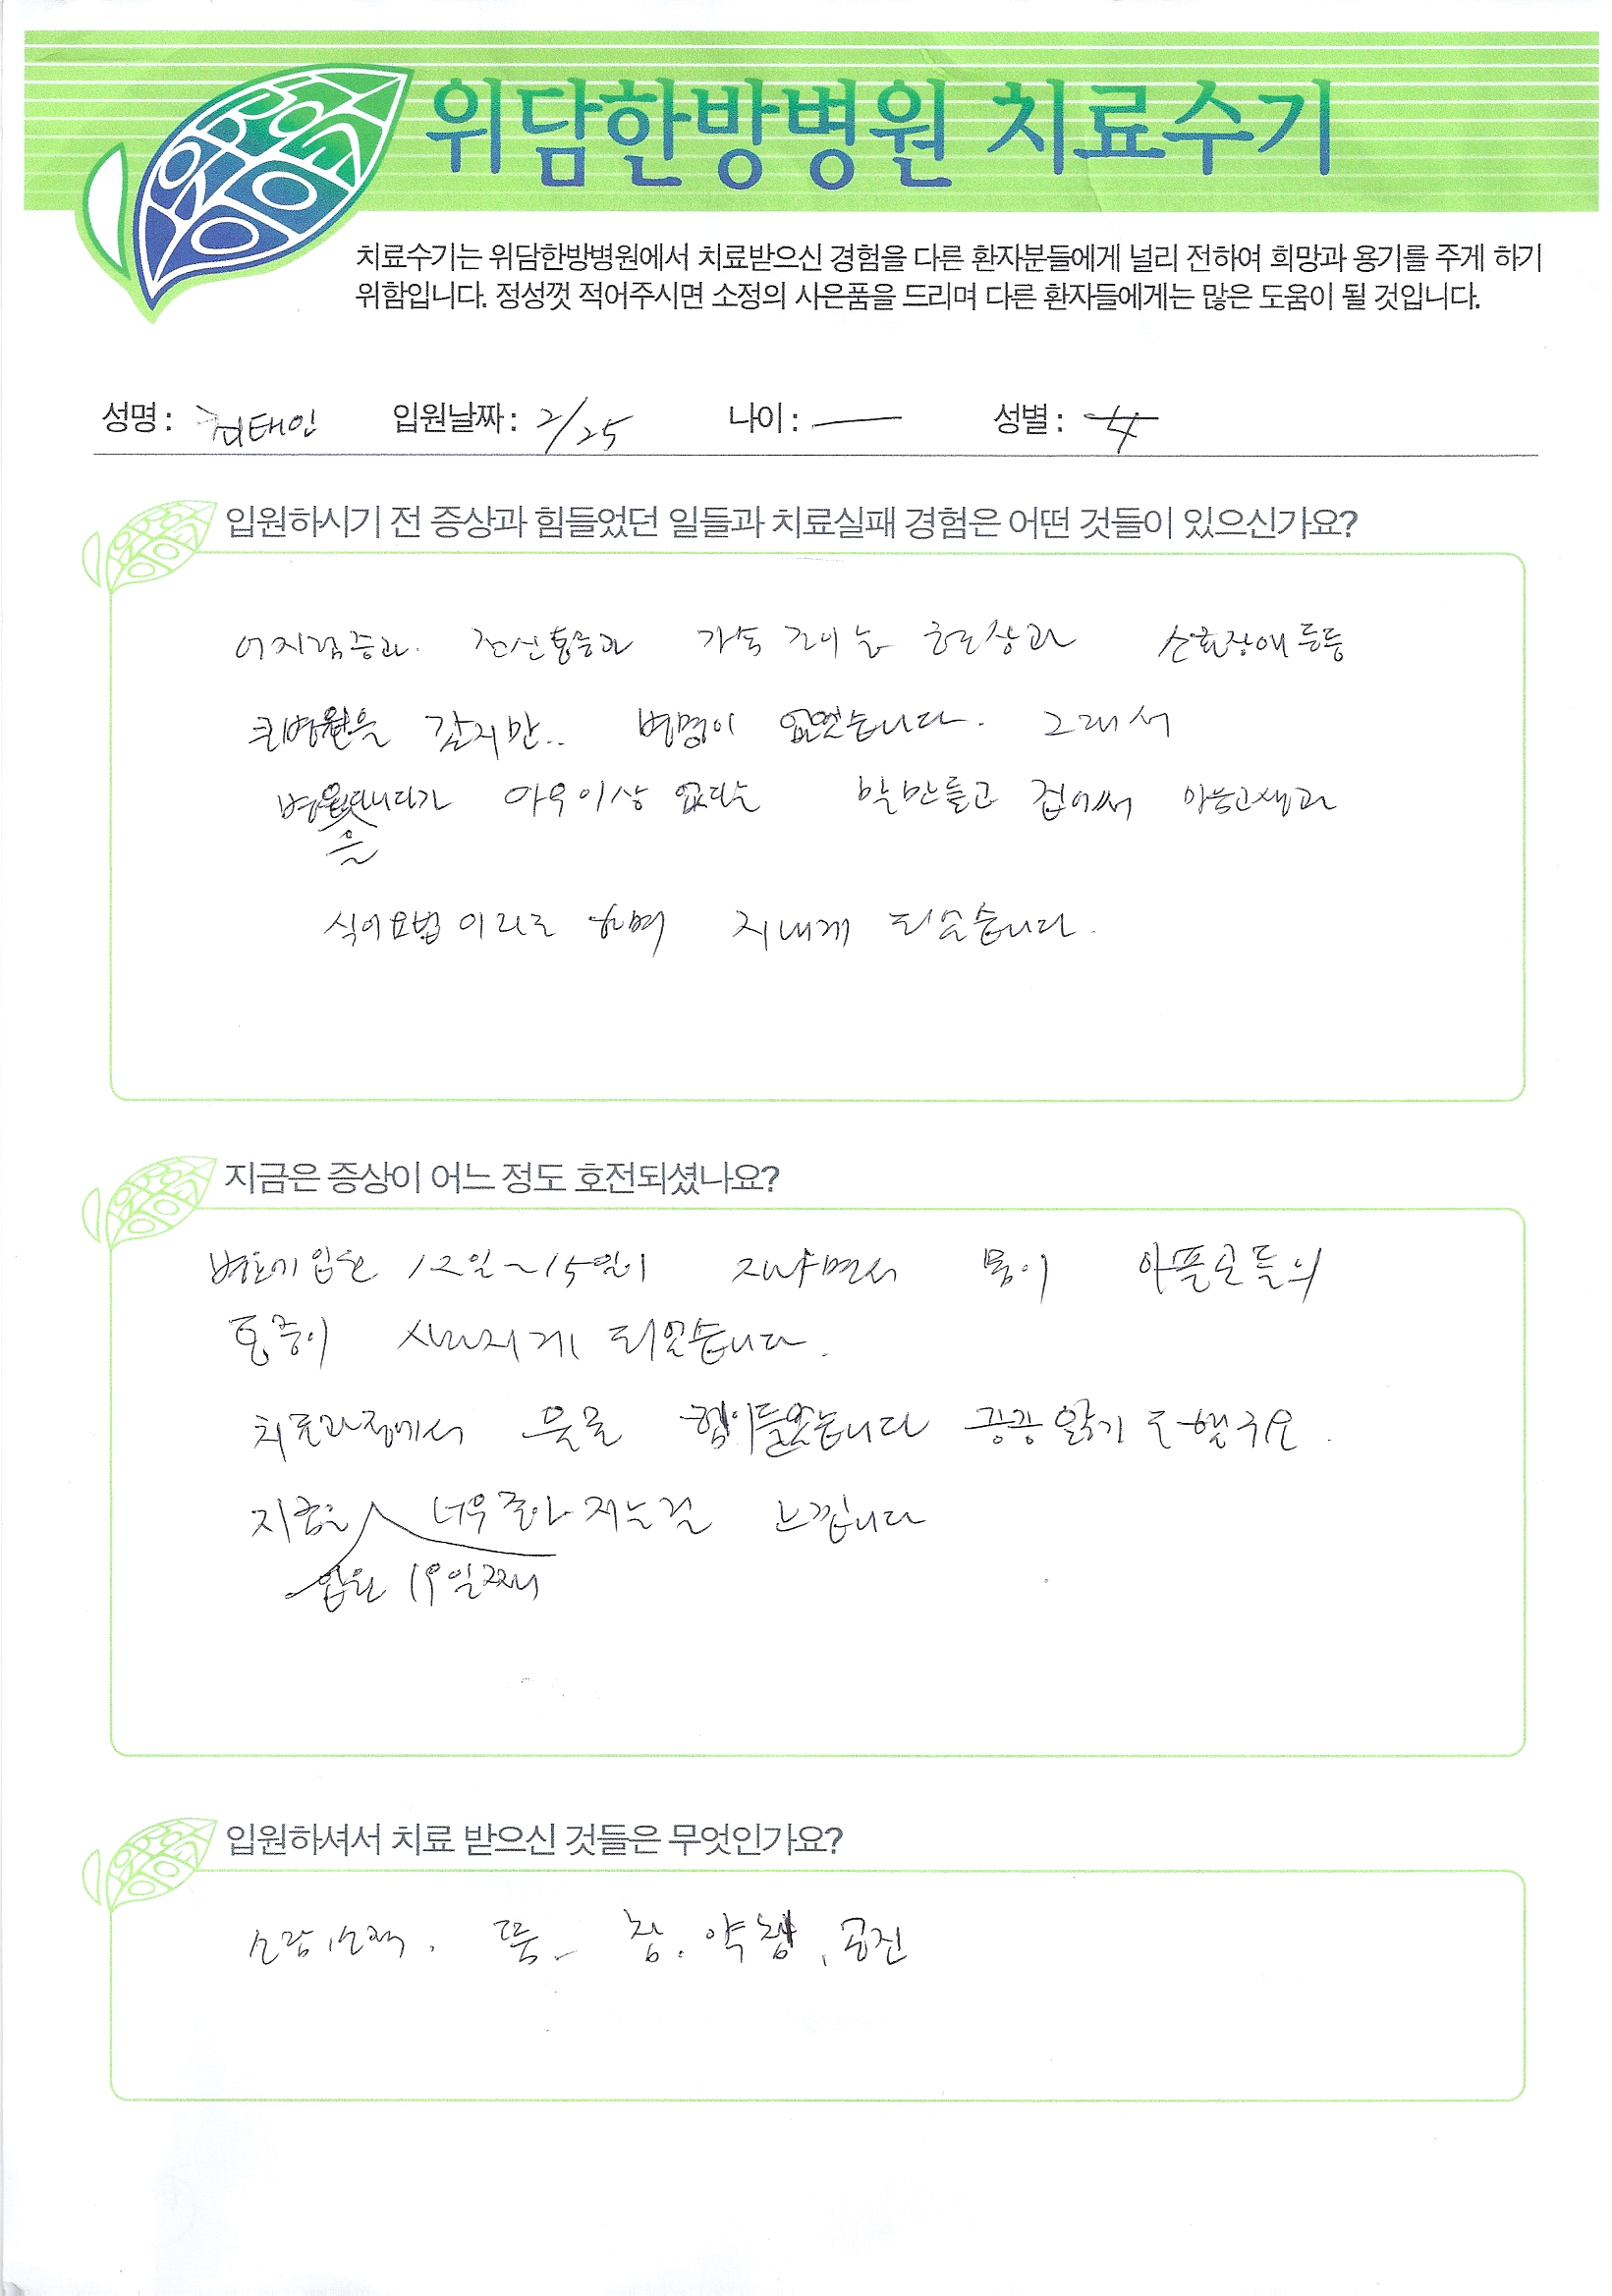 위담한방병원 치료수기
치료수기는 위담한방병원에서 치료받으신 경험을 다른 환자분들에게 널리 전하여 희망과 용기를 주게 하기
위함입니다. 정성껏 적어주시면 소정의 사은품을 드리며 다른 환자들에게는 많은 도움이 될 것입니다.
성명 : 태인 입원날짜 : 2/25 나이 : 성별 : 女
입원하시기 전 증상과 힘들었던 일들과 치료실패 경험은 어떤 것들이 있으신가요?
어지럼증과. 전신통증과 가슴 조이는 현상과 순환장애 등등
큰병원을 갔지만.. 병명이 없었습니다. 그래서
병원을 다니다가 아무이상 없다는 말만듣고 집에서 마음고생과
식이요법 이리로 하며 지내게 되었습니다.
지금은 증상이 어느 정도 호전되셨나요?
병원에 입원 12일~15일이 지나면서 몸이 아픈곳들의
통증이 사라지게 되었습니다.
치료과정에서 물론 힘이들었습니다 끙끙 앓기도 했구요.
지금은 입원 19일째 너무 좋아 지는걸 느낍니다
입원하셔서 치료 받으신 것들은 무엇인가요?
소람, 소적. 뜸. 침. 약침, 공진